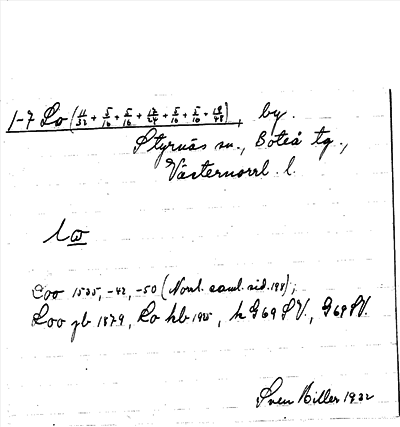 1-7 Lo (11/32 + 5/16 + 5/16 + 17/24 + 5/16 + 5/10 + 19/48), by.
Styrnäs sn., Boteå tg.,
Västernorrl. l.
lω
Loo 1535, -42, -50 (Norrl. saml. sid. 198);
Loo jb 1879, Lo kb 1925, k G 69 SV., G 69 SV.
Sven Hiller 1932